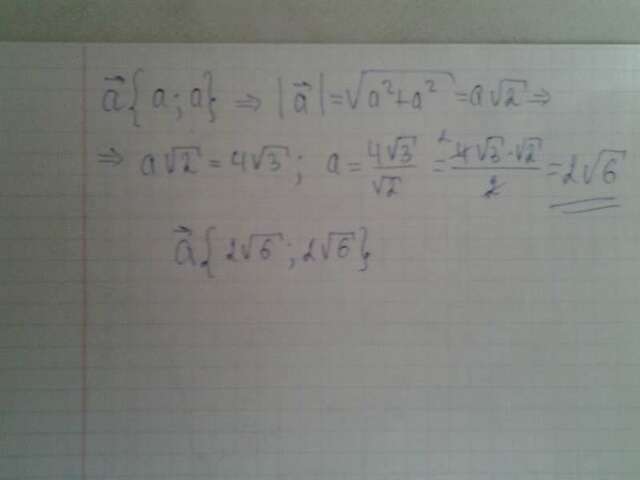 a⃗{a; a} ⇒ |a⃗| = √(a²+a²) = a√2 ⇒
⇒ a√2 = 4√3; a = 4√3/√2 = 4√3·√2/2 = 2√6
a⃗{2√6; 2√6}